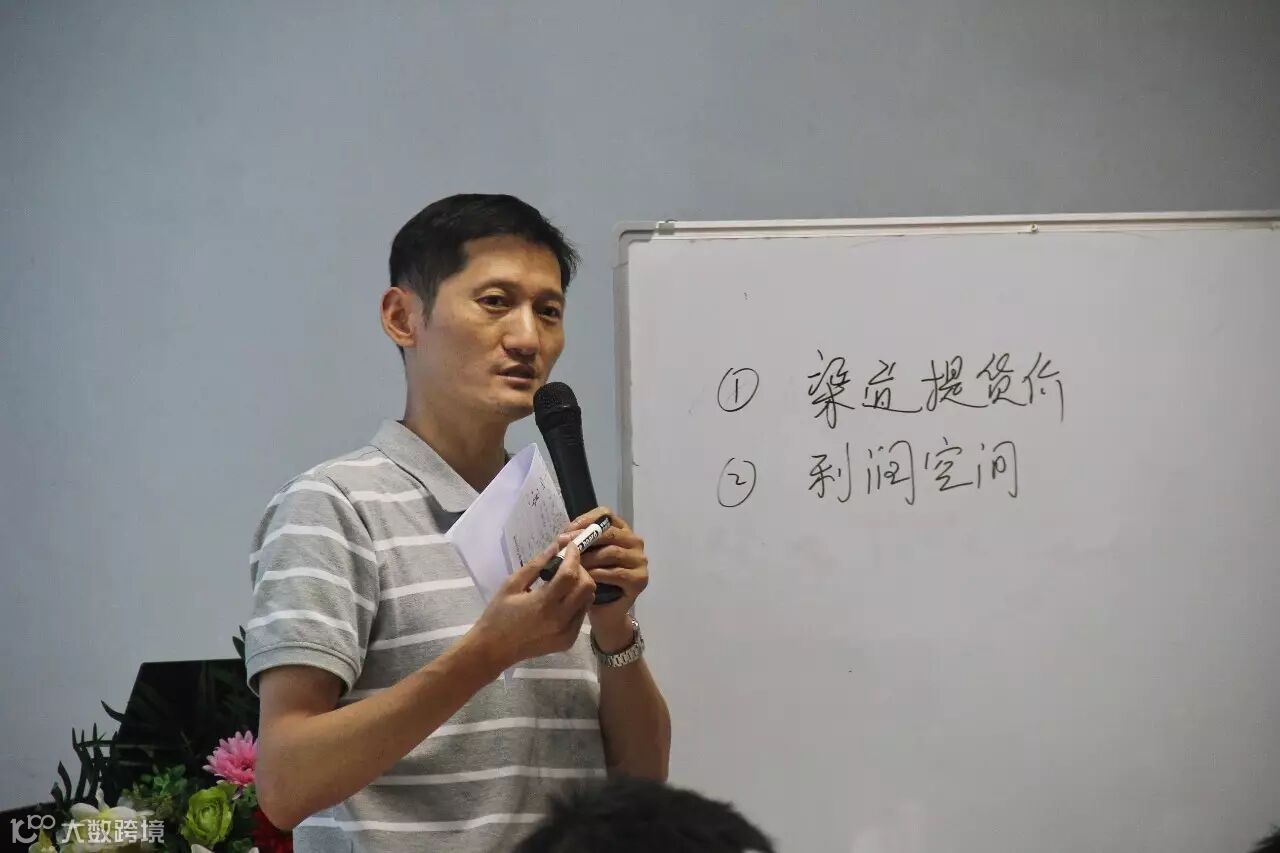 ① 渠道提货价
② 利润空间
大数跨境